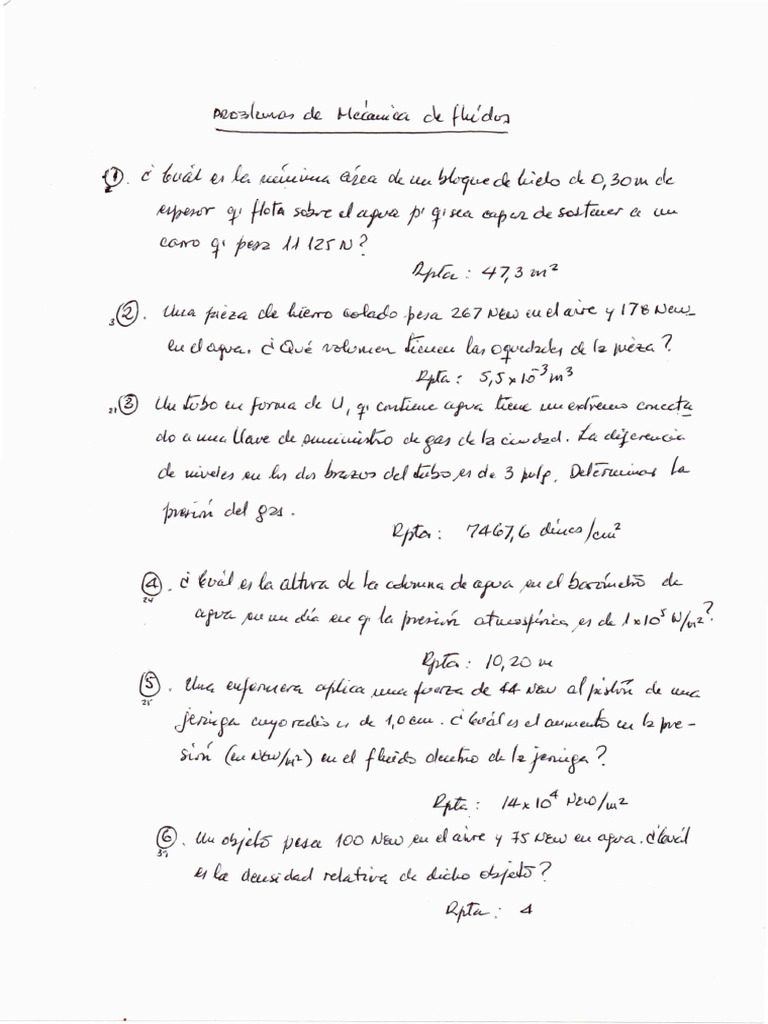 Problemas de Mecánica de fluidos
① ¿Cuál es la mínima área de un bloque de hielo de 0,30 m de
espesor q' flota sobre el agua p' q' sea capaz de sostener a un
carro q' pesa 11 125 N?
Rpta : 47,3 m²
3 ②. Una pieza de hierro colado pesa 267 New en el aire y 178 New
en el agua. ¿Qué volumen tienen las oquedades de la pieza?
Rpta : 5,5 x 10⁻³ m³
21 ③ Un tubo en forma de U, q' contiene agua tiene un extremo conecta
do a una llave de suministro de gas de la ciudad. La diferencia
de niveles en los dos brazos del tubo, es de 3 pulg. Determinar la
presión del gas.
Rpta : 7467,6 dinas/cm²
④. ¿Cuál es la altura de la columna de agua en el barómetro de
24
agua en un día en q' la presión atmosférica es de 1x10⁵ N/m²?
Rpta : 10,20 m
⑤. Una enfermera aplica una fuerza de 44 New al pistón de una
25
jeringa cuyo radio es de 1,0 cm. ¿Cuál es el aumento en la pre-
sión (en New/m²) en el fluido dentro de la jeringa?
Rpta : 14 x 10⁴ New/m²
⑥. Un objeto pesa 100 New en el aire y 75 New en agua. ¿Cuál
es la densidad relativa de dicho objeto?
Rpta : 4